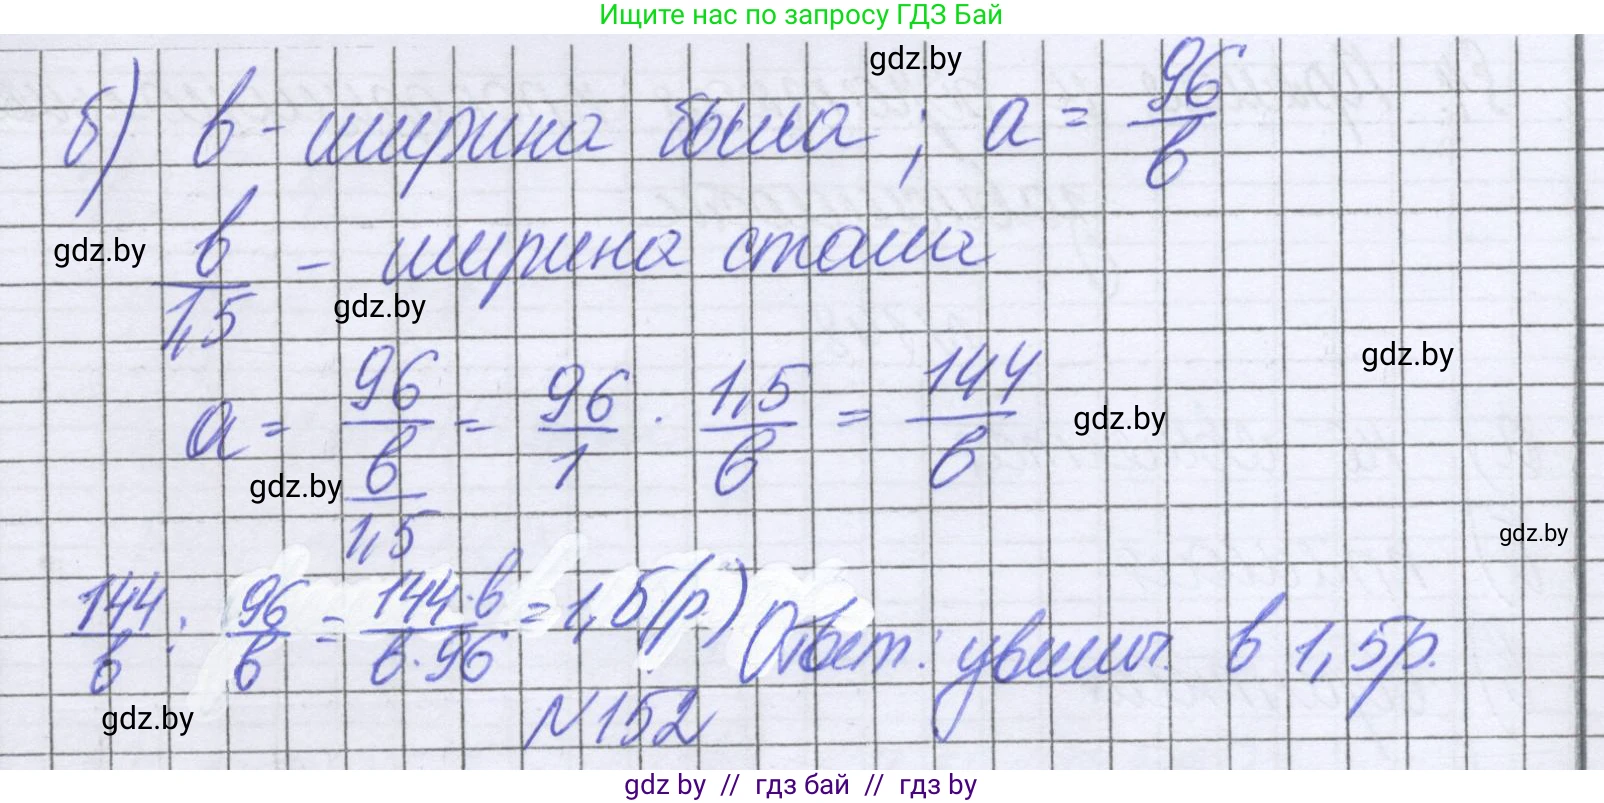 Ищите нас по запросу ГДЗ Бай
gdz.by
б) в - ширина была ; a = 96/в
gdz.by
в/1,5 - ширина стала
gdz.by
gdz.by
a = 96/(в/1,5) = 96/1 · 1,5/в = 144/в
gdz.by
gdz.by
gdz.by
144/в : 96/в = 144·в/в·96 = 1,5(р.) Ответ: увелич. в 1,5р.
gdz.by
N152
gdz by // гдз бай // гдз by